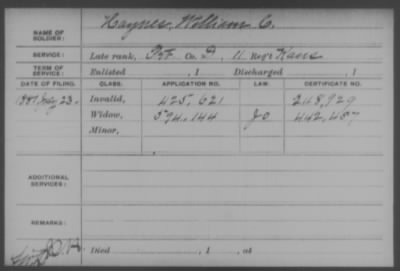 Haynes, William C.
NAME OF SOLDIER:
SERVICE: Late rank, Pvt Co. D, 11 Reg't Kans
TERM OF SERVICE: Enlisted , 1 Discharged , 1
DATE OF FILING. CLASS. APPLICATION NO. LAW. CERTIFICATE NO.
1881 July 23. Invalid, 425,621 248,929
Widow, 594,144 442,457
Minor,
ADDITIONAL SERVICES:
REMARKS:
Died , 1 , at